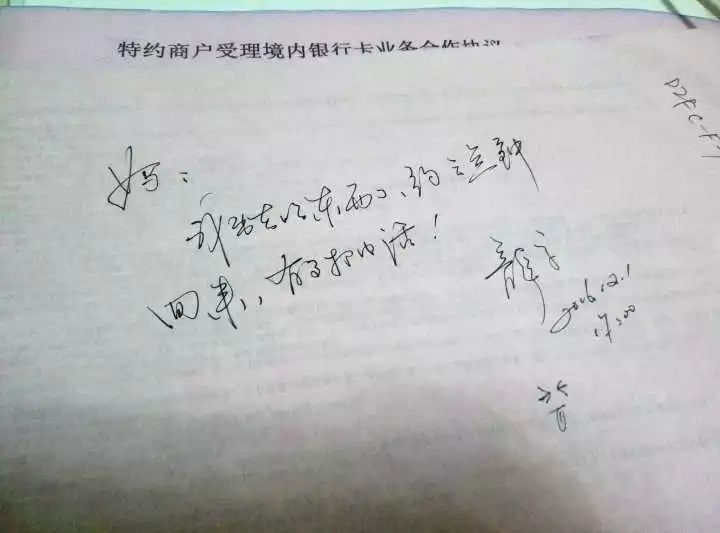 特约商户受理境内银行卡业务合作协议
妈：
我出去吃东西了、约三点钟
回来，有事打电话！
2016.12.1
17:00